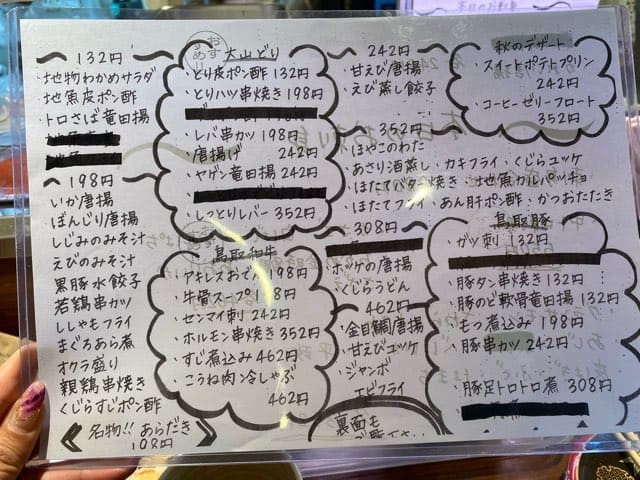 132円
・地物わかめサラダ
・地魚皮ポン酢
・トロさば竜田揚
198円
・いか唐揚
・ぼんじり唐揚
・しじみのみそ汁
・えびのみそ汁
・黒豚水餃子
・若鶏串カツ
・ししゃもフライ
・まぐろあら煮
・オクラ盛り
・親鶏串焼き
・くじらすじポン酢
名物!! あらだき
108円
おすすめ
大山どり
・とり皮ポン酢 132円
・とりハツ串焼き 198円
・レバ串カツ 198円
・唐揚げ 242円
・ヤゲン竜田揚 242円
・しっとりレバー 352円
鳥取和牛
・アキレスおでん 198円
・牛骨スープ 198円
・センマイ刺 242円
・ホルモン串焼き 352円
・すじ煮込み 462円
・こうね肉冷しゃぶ
462円
242円
・甘えび唐揚
・えび蒸し餃子
352円
・ほやこのわた
・あさり酒蒸し・カキフライ・くじらユッケ
・ほたてバター焼き・地魚カルパッチョ
・ほたてフライ・あん肝ポン酢・かつおたたき
308円
・ホッケの唐揚
・くじらうどん
462円
・金目鯛唐揚
・甘えびユッケ
・ジャンボ
エビフライ
裏面も
秋のデザート
・スイートポテトプリン
242円
・コーヒーゼリーフロート
352円
鳥取豚
・ガツ刺 132円
・豚タン串焼き 132円
・豚のど軟骨竜田揚 132円
・もつ煮込み 198円
・豚串カツ 242円
・豚足トロトロ煮 308円